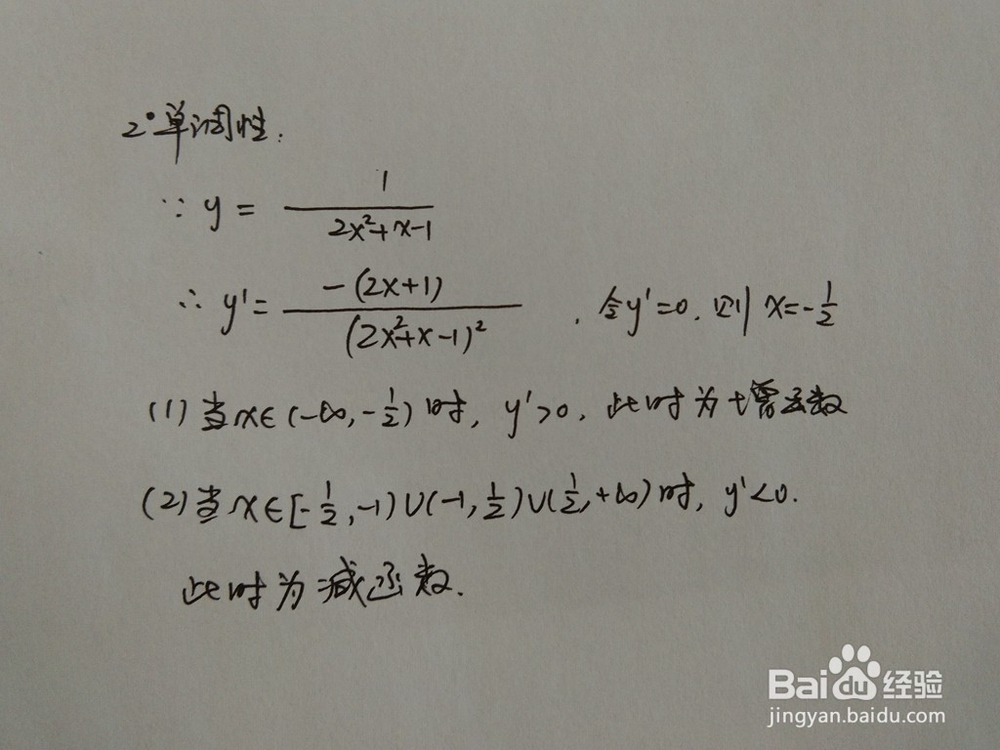 2°单调性:
∵ y = 1/(2x²+x-1)
∴ y' = -(2x+1)/(2x²+x-1)² . 令y'=0. 则 x=-1/2
(1) 当x∈(-∞,-1/2)时, y'>0, 此时为增函数
(2) 当x∈[-1/2,-1)∪(-1,1/2)∪(1/2,+∞)时, y'<0.
此时为减函数.
Baidu经验
jingyan.baidu.com